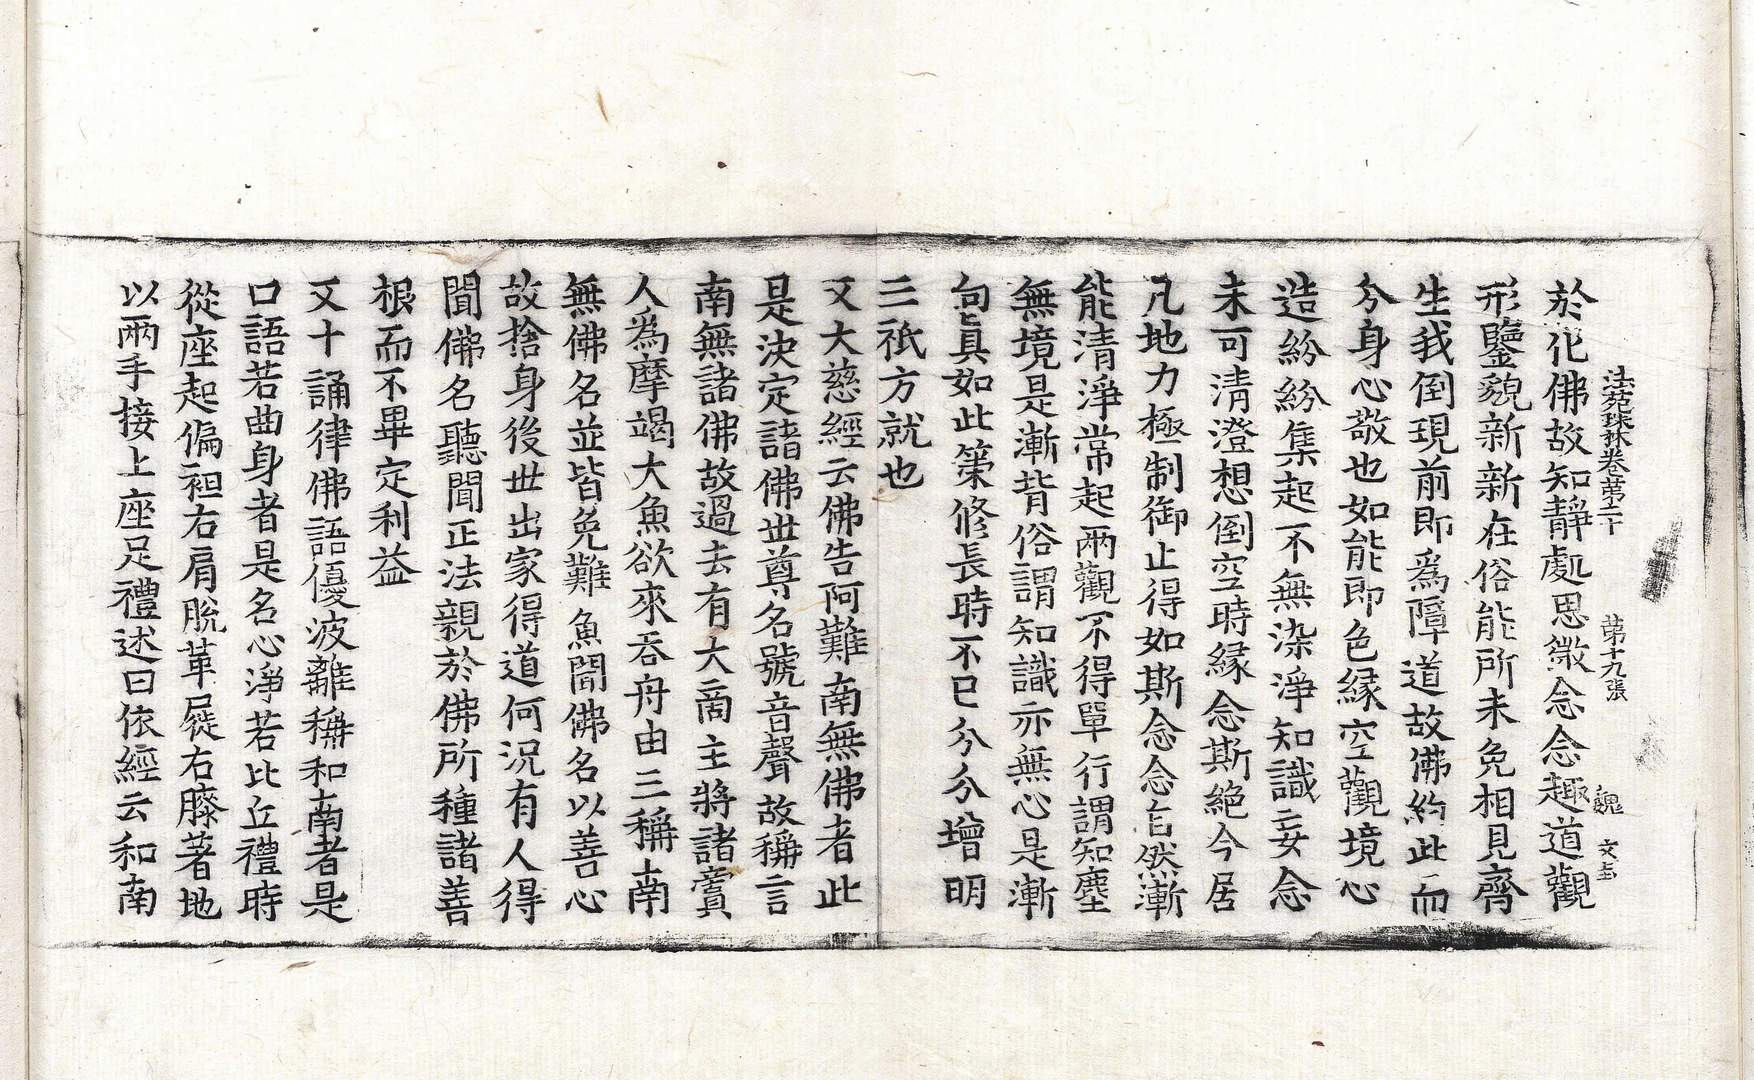 法苑珠林卷第二十　第十九張　魏　文圭
於化佛故知靜處思微念念趣道觀
形鑒貌新新在俗能所未免相見齊
生我倒現前即爲障道故佛約此而
分身心敬也如能即色緣空觀境心
造紛紛集起不無染淨知識妄念
未可清澄想倒空時緣念斯絕今居
凡地力極制御止得如斯念念自然漸
能清淨常起兩觀不得單行謂知塵
無境是漸背俗謂知識亦無心是漸
向眞如此策修長時不已分分增明
三祇方就也
又大慈經云佛告阿難南無佛者此
是決定諸佛世尊名號音聲故稱言
南無諸佛故過去有大商主將諸賣
人爲摩竭大魚欲來吞舟由三稱南
無佛名並皆免難魚聞佛名以善心
故捨身後世出家得道何況有人得
聞佛名聽聞正法親於佛所種諸善
根而不畢定利益
又十誦律佛語優波離稱和南者是
口語若曲身者是名心淨若比丘禮時
從座起偏袒右肩脫革屣右膝著地
以兩手接上座足禮述曰依經云和南